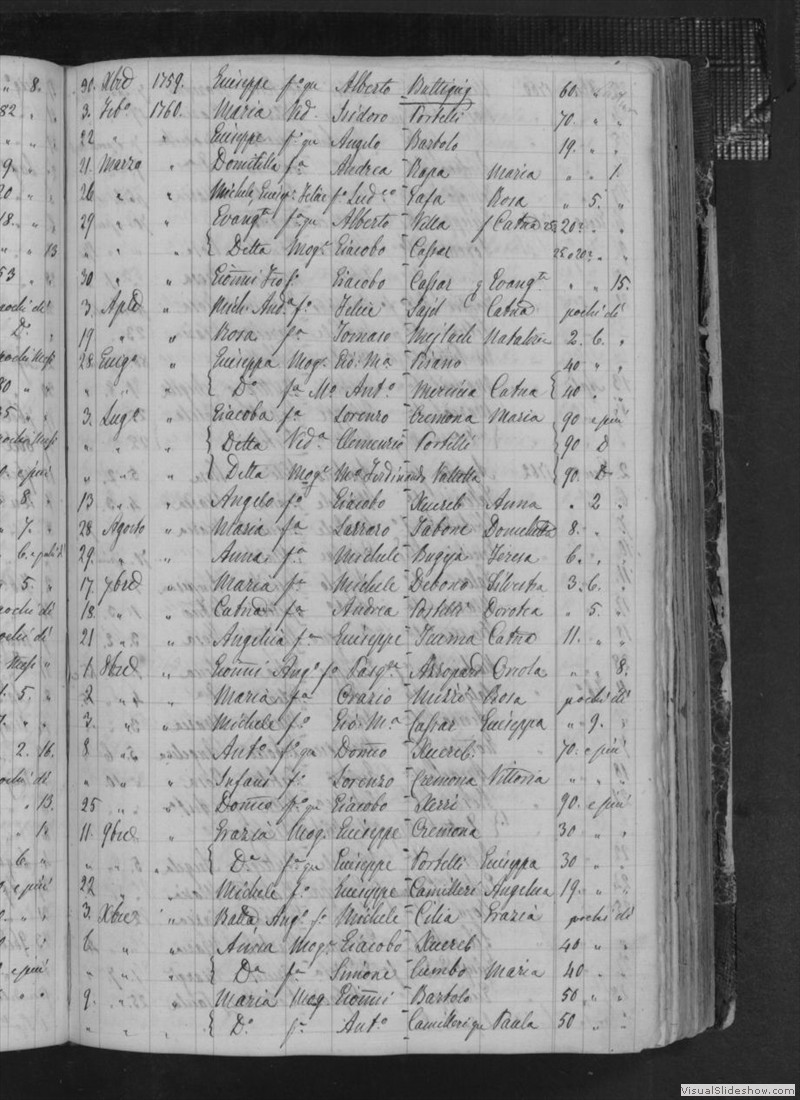 " 8.
82 "
" " "
9. "
20 "
18. "
" " 13
53 "
pochi di
D.º
pochi Mesi
80 "
35 "
pochi Mesi
e più
" 8.
" 7.
" 5.
pochi di
pochi di
Mesi "
1. 5. "
2. 16.
pochi di
" 13.
" 1.
6. "
e più
e più
30. Xbrē 1759. Giuseppe f.º qu Alberto Buttigig 60. " "
3. Feb.º 1760. Maria Ved. Isidoro Portelli 70. " "
22 " " Giuseppe f.º qu Angelo Bartolo 19. " "
21. Marzo " Domitilla f.ª Andrea Rapa Maria " " 1.
26 " " Michele Felice f.º Lud.co Gafa Rosa " 5. "
29 " " Evang.ta f.ª qu Alberto Vella Catnā 25 20 " "
" " " { Detta Mog.e Giacobo Cassar 25 o 20 " "
30 " " Gioñni f.º Giacobo Cassar Evang.ta " " 15.
3. Aplē " Mich. And.ª f.º Felice Sajd Catnā pochi di
19 " " Rosa f.ª Tomaso Mejlach Natalizia 2. 6. "
28 Giug.º " Giuseppa Mog. Gio. M.ª Pisano 40 " "
" " " { D.ª f.ª M.º Ant.º Mercieca Catnā { 40 " "
3. Lug.º " Giacoba f.ª Lorenzo Cremona Maria { 90 e più
" " " { Detta Ved.ª Clemenzio Portelli { 90 D
" " " { Detta Mog.e M.º Ferdinando Valletta { 90. D
13 " " Angelo f.º Giacobo Xuereb Anna " 2 "
28 Agosto " Maria f.ª Lazzaro Tabone Domenica 8. " "
29. " " Anna f.ª Michele Bugeja Teresa 6. " "
17. 7brē " Maria f.ª Michele Debono Silvestra 3. 6. "
18. " " Catnā f.ª Andrea Portelli Dorotea " 5. "
21 " " Angelica f.ª Giuseppe Catnā 11. " "
1. 8brē " Gioñni Ang.º f.º Pasq.le Azzopard Orsola " " 8.
2 " " Maria f.ª Orazio Mizzi Rosa pochi di
3. " " Michele f.º Gio. M.ª Cassar Giuseppa " 9. "
8 " " Ant.º f.º qu Domco Xuereb 70. e più
" " " Infans f.º Lorenzo Cremona Vittoria " " "
25 " " Domco f.º qu Giacobo Xerri 90. e più
11. 9brē " Grazia Mog. Giuseppe Cremona 30 " "
" " " { D.ª f.ª qu Giuseppe Portelli Giuseppa 30 " "
22 " " Michele f.º Giuseppe Camilleri Angelica 19. " "
3. Xbrē " Ang.º f.º Michele Cilia Grazia pochi di
6 " " Mog.e Giacobo Xuereb 40 " "
" " " { D.ª f.ª Simone Cumbo Maria 40 " "
9. " " Maria Mog. Gioñni Bartolo 50 " "
" " " { D.ª f.ª Ant.º Camilleri qu Paula 50 " "
VisualSlideshow.com